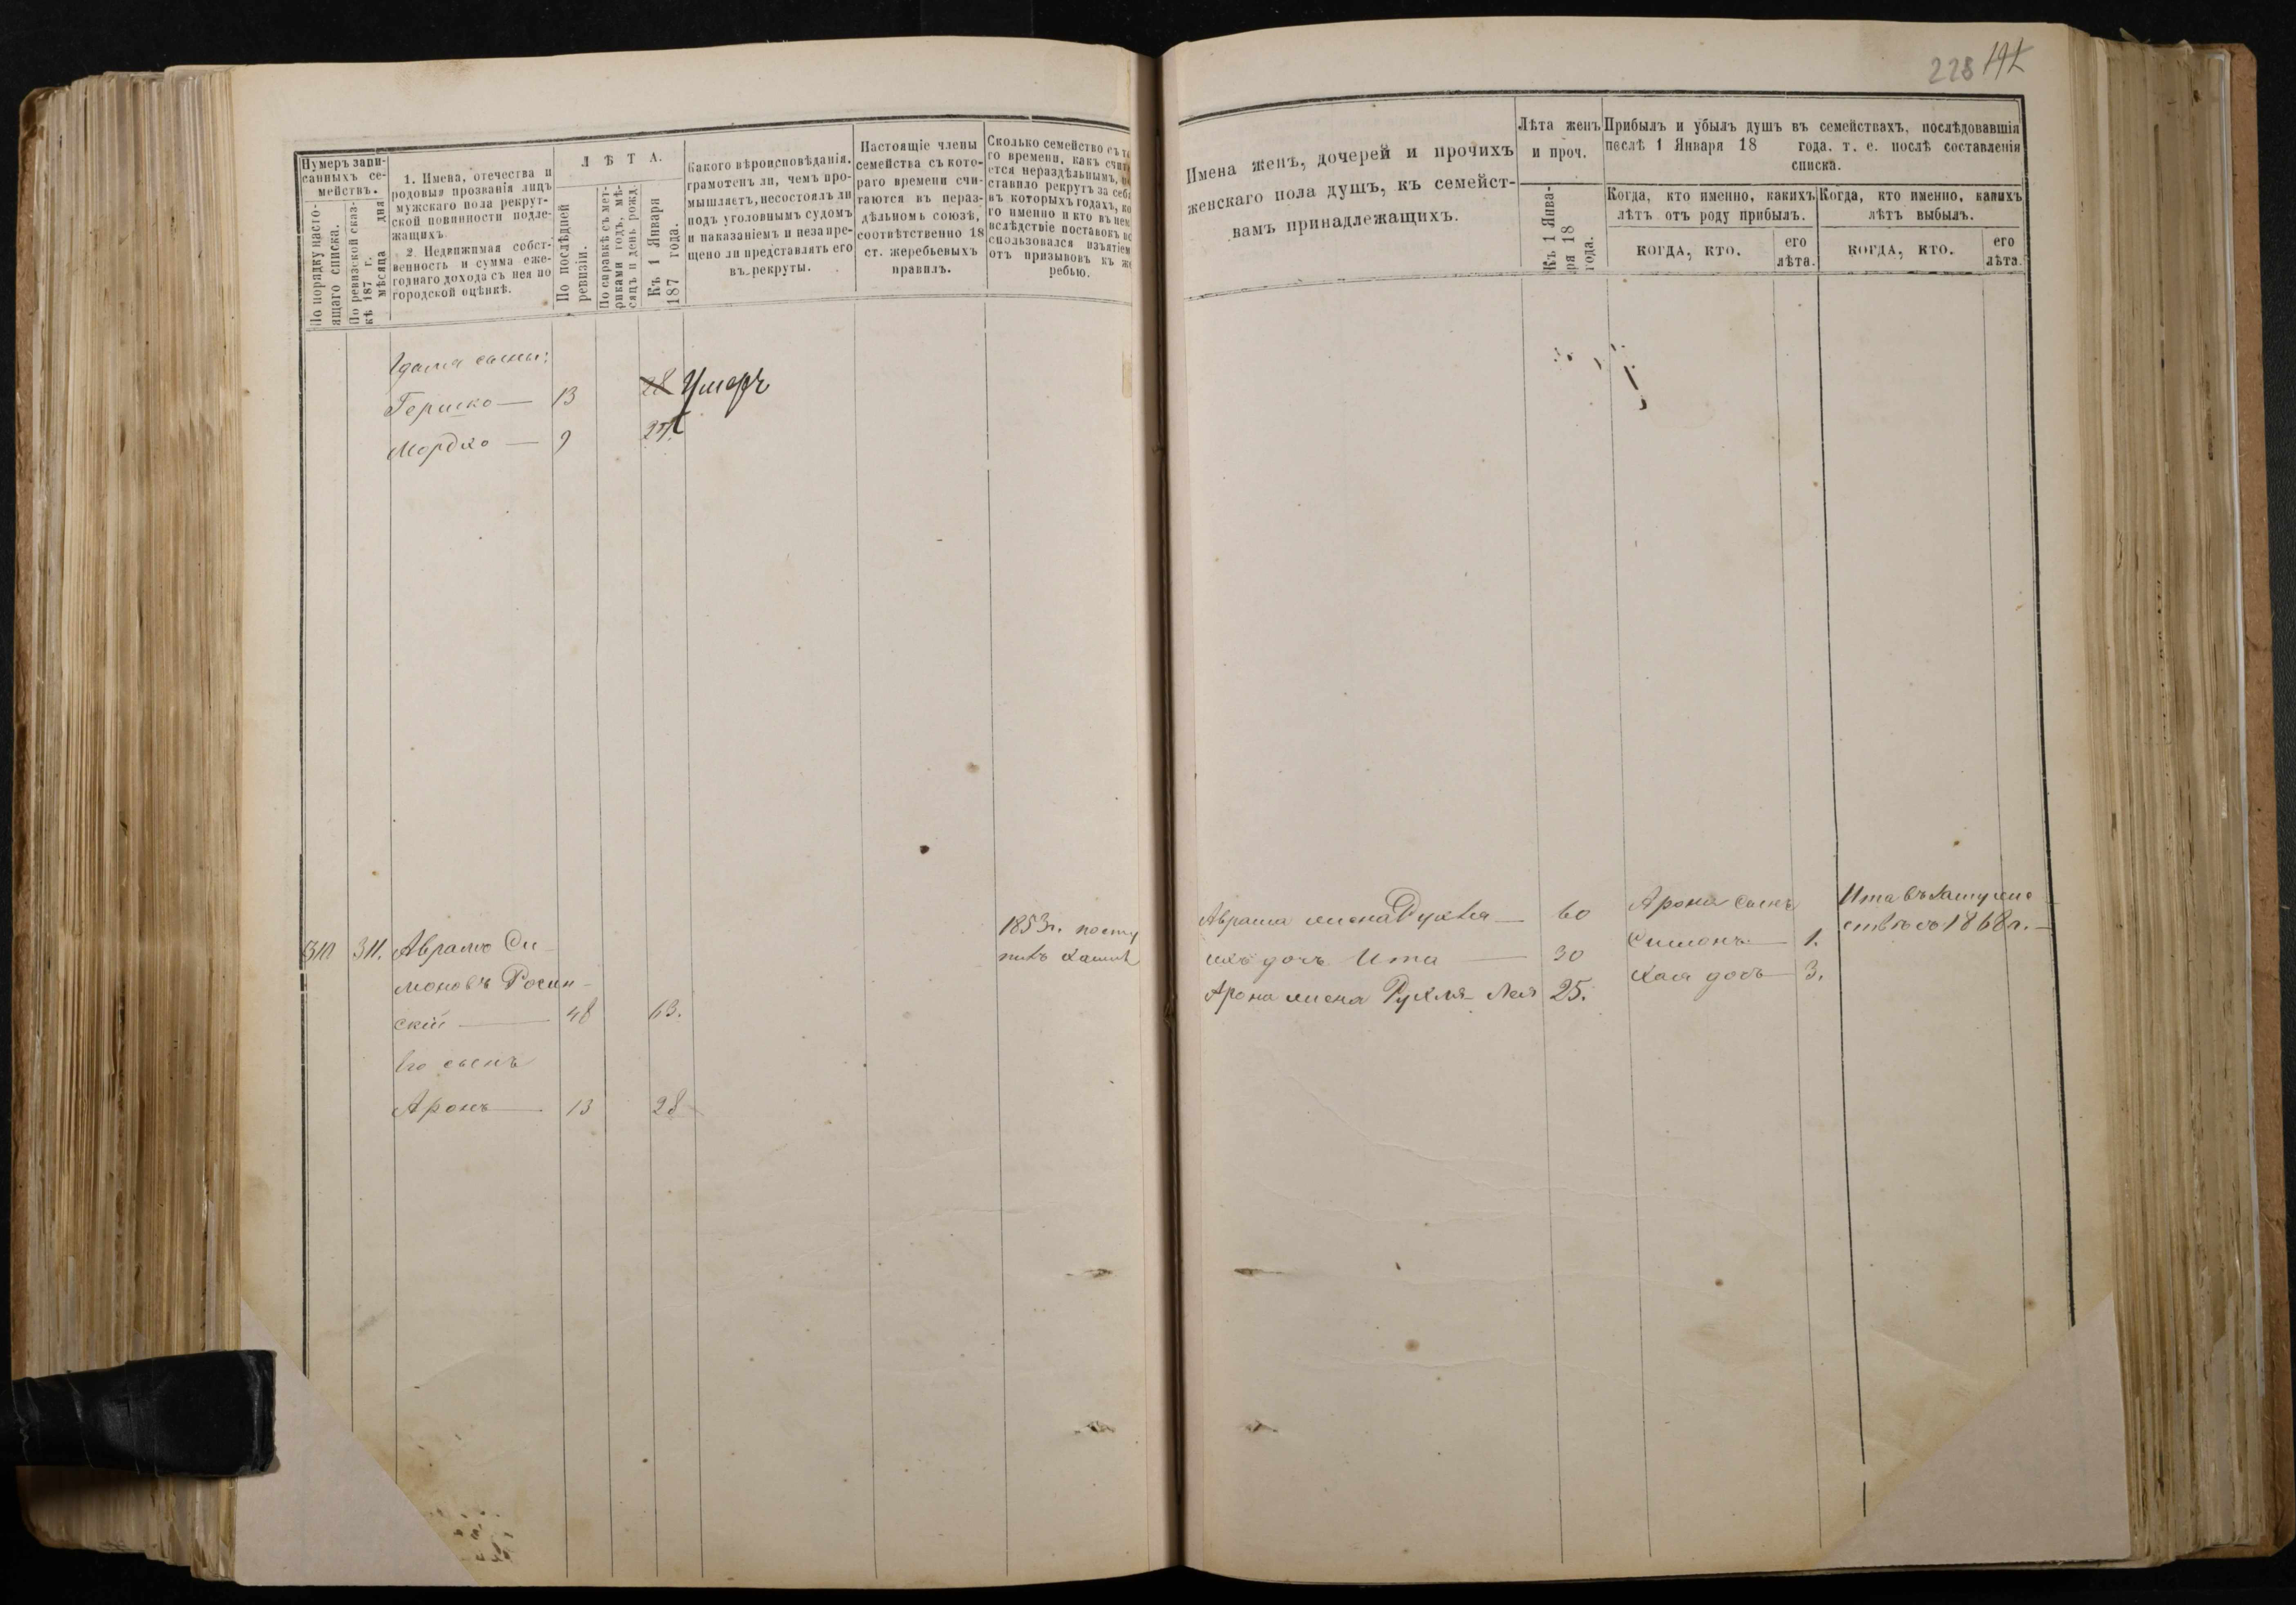 228
Нумеръ запи-
санныхъ се-
мействъ.
По порядку насто-
ящаго списка.
По ревизской сказ-
кѣ 187 г.
мѣсяца дня
1. Имена, отечества и
родовыя прозванія лицъ
мужскаго пола рекрут-
ской повинности подле-
жащихъ
2. Недвижимая собст-
венность и сумма еже-
годнаго дохода съ нея по
городской оцѣнкѣ.
ЛѢТА.
По послѣдней
ревизіи.
По справкѣ съ мет-
риками годъ, мѣ-
сяцъ и день рожд.
Къ 1 Января
187 года.
Какого вѣроисповѣданія.
грамотенъ ли, чѣмъ про-
мышляетъ, несостоялъ ли
подъ уголовнымъ судомъ
и наказаніемъ и незапре-
щено ли представлять его
въ рекруты.
Настоящіе члены
семейства съ кото-
раго времени счи-
таются въ нераз-
дѣльномъ союзѣ,
соотвѣтственно 18
ст. жеребьевыхъ
правилъ.
Сколько семейство съ
го времени, какъ
ется нераздѣльнымъ,
ставило рекрутъ за
въ которыхъ годахъ,
го именно и кто въ
вслѣдствіе поставокъ
спользовался изъятіем
отъ призывовъ къ же
ребью.
сыны:
Гершко — 13 28 Умеръ
Мордко — 9
310 311. Аврамъ Си-
моновъ Росин-
скій — 48 63.
Его сынъ
Аронъ — 13 28
1853г. посту
Имена женъ, дочерей и прочихъ
женскаго пола душъ, къ семейст-
вамъ принадлежащихъ.
Лѣта женъ
и проч.
Къ 1 Янва-
ря 18
года.
Прибылъ и убылъ душъ въ семействахъ, послѣдовавшія
послѣ 1 Января 18 года. т. е. послѣ составленія
списка.
Когда, кто именно, какихъ
лѣтъ отъ роду прибылъ.
КОГДА, КТО.
его
лѣта.
Когда, кто именно, какихъ
лѣтъ выбылъ.
КОГДА, КТО.
его
лѣта.
Аврама жена — 60
ихъ дочь Ита — 30
Арона жена Рухля Лея 25.
Арона сынъ
Симонъ — 1.
Хая дочь — 3.
Ита въ замуже
ствѣ съ 1868г. —